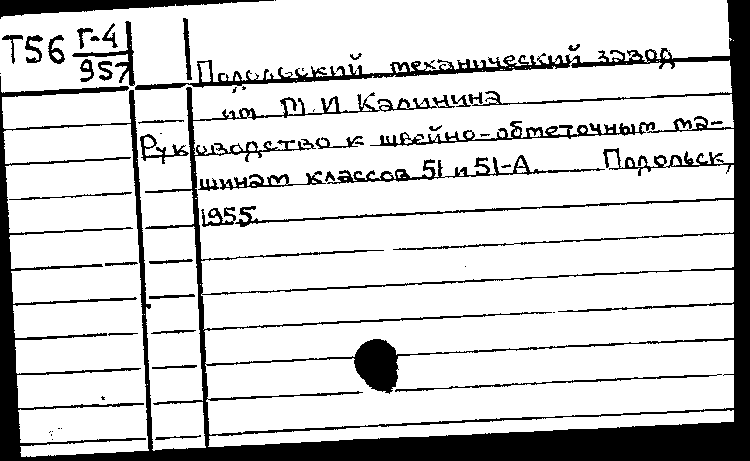 Т56 Г-4
957
Подольский механический завод
им М.И. Калинина
Руководство к швейно-обметочным ма-
шинам классов 51 и 51-А. Подольск,
1955.